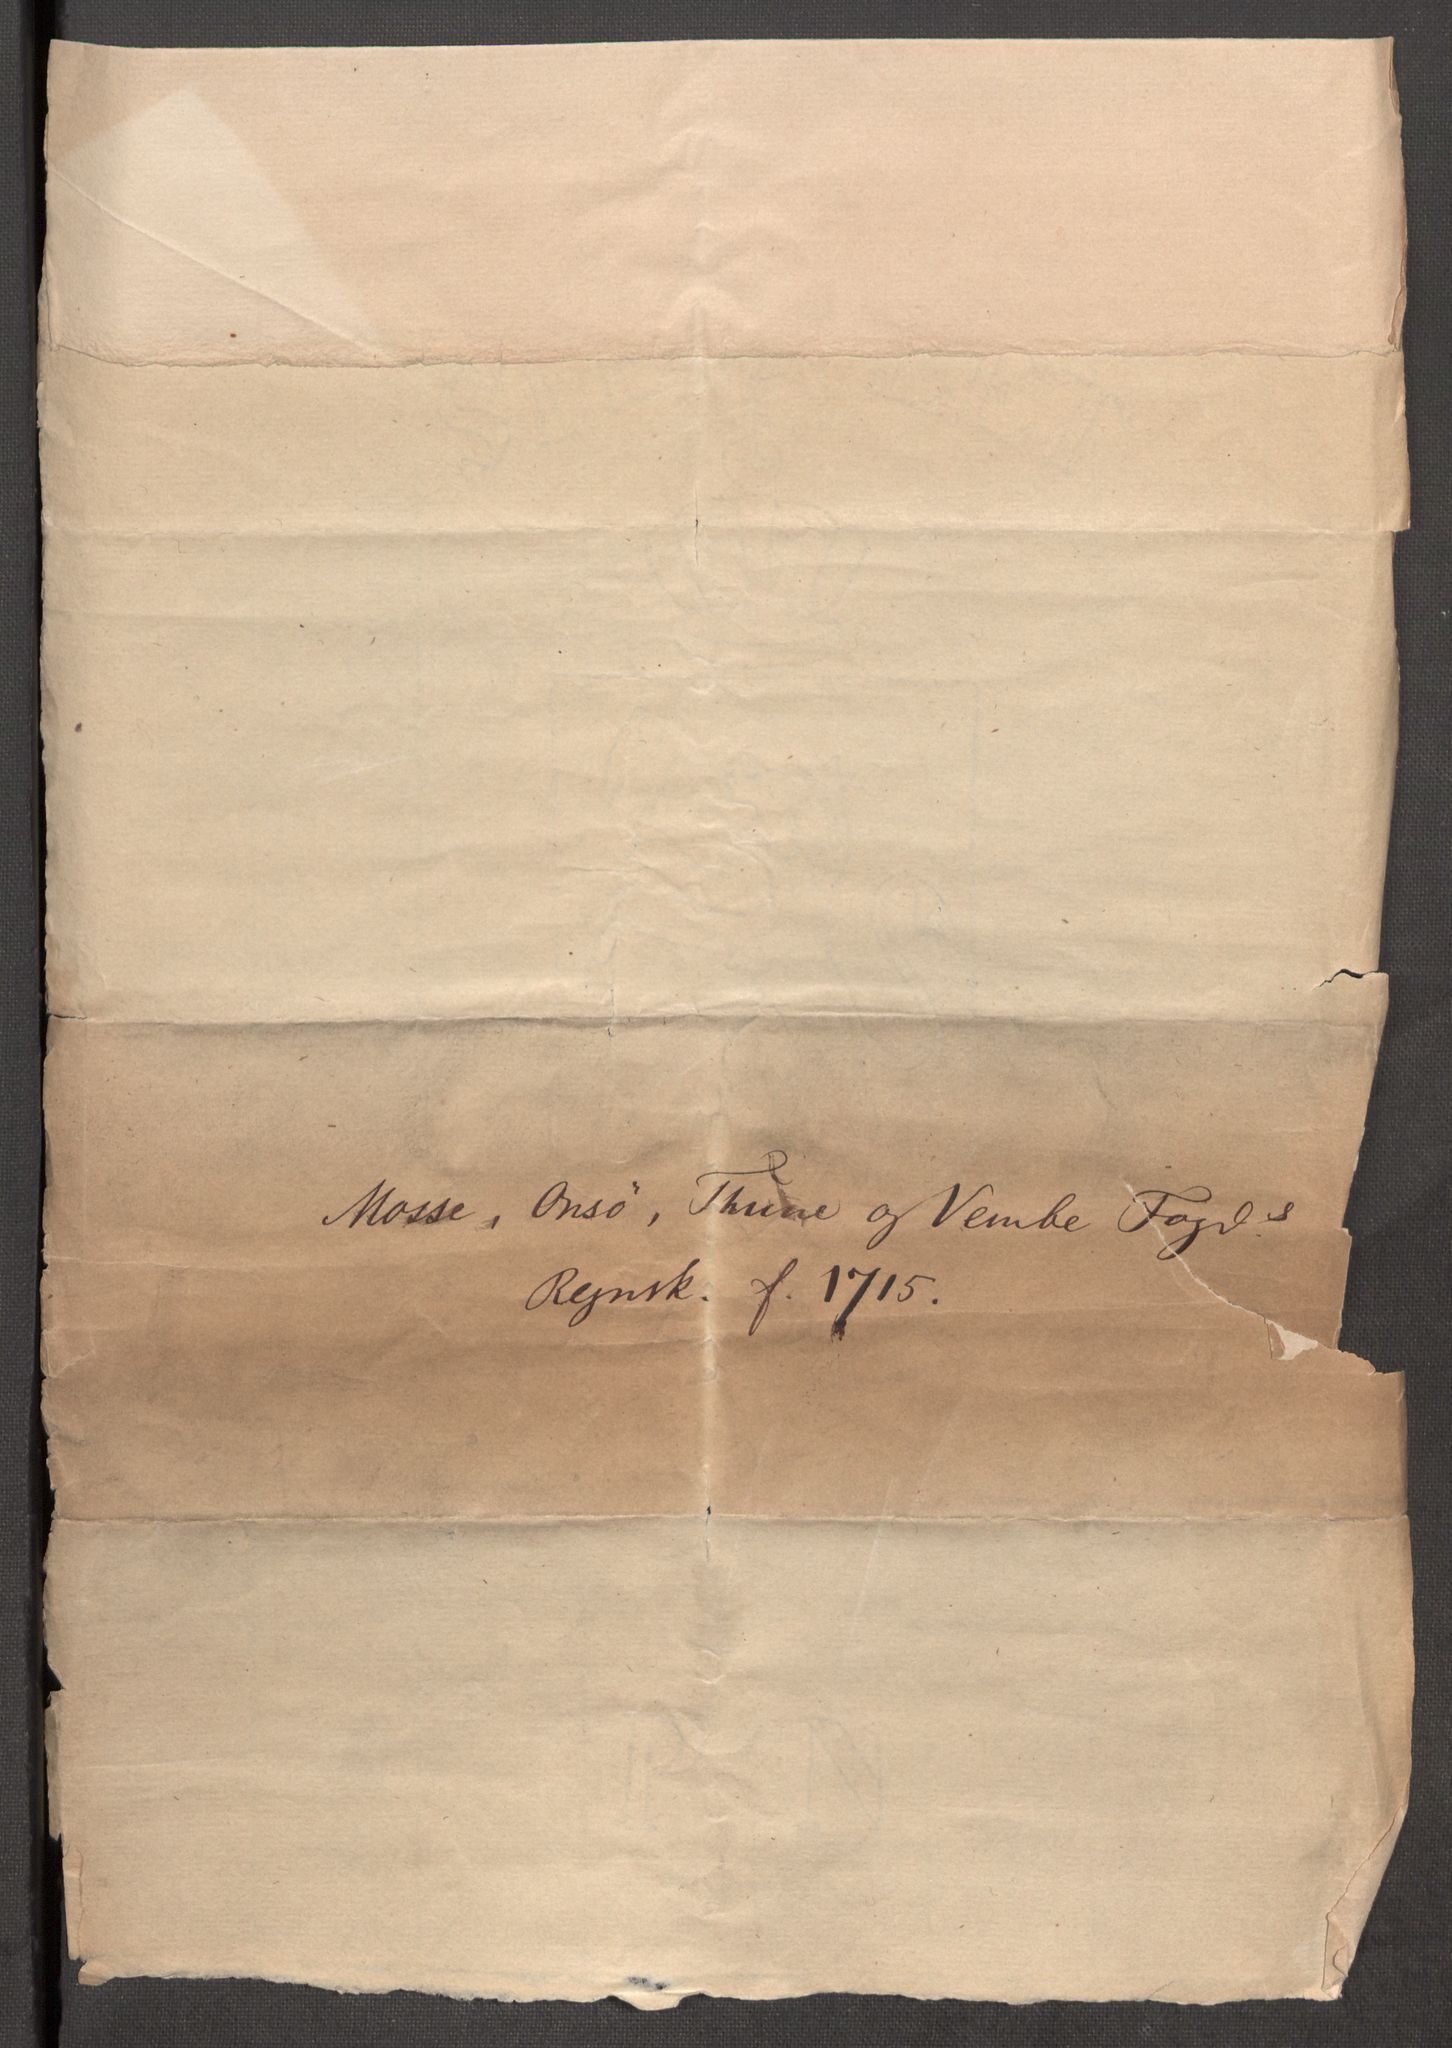 Mosse, Onsö, Thune og Vembe Fogd.s
Regnsk. f. 1715.